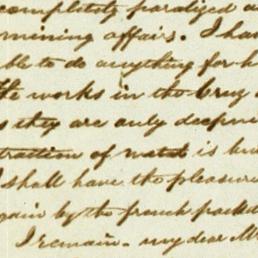 completely paralized a
mining affairs. I ha
ble to do anything for h
The works in the Cruz
s they are only deepen
traction of water is bu
I shall have the pleasure
gain by the french packet
I remain - my dear M